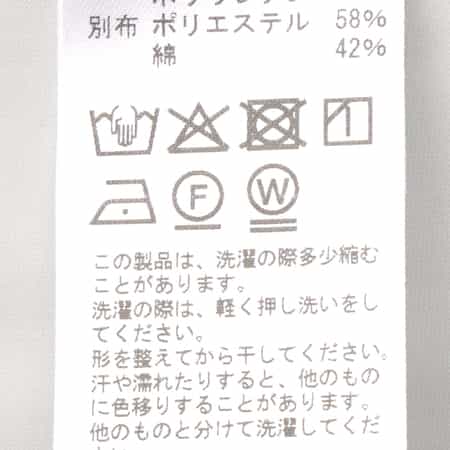 別布 ポリエステル 58%
綿 42%
F W
この製品は、洗濯の際多少縮む
ことがあります。
洗濯の際は、軽く押し洗いをし
てください。
形を整えてから干してください。
汗や濡れたりすると、他のもの
に色移りすることがあります。
他のものと分けて洗濯してくだ